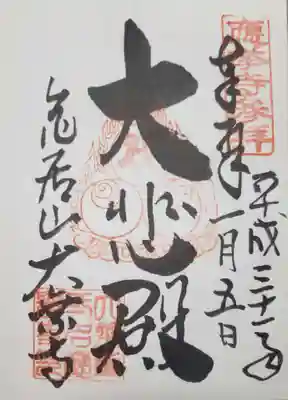 奉拝
平成三十一年
一月五日
大悲殿
亀居山大乗寺